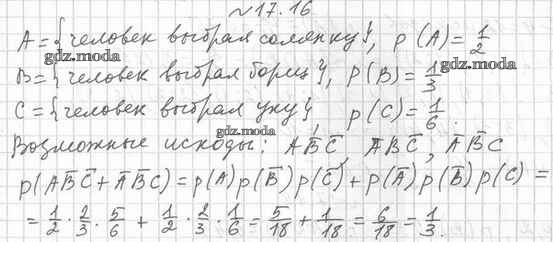 №17.16
A = {человек выбрал солянку}, p(A) = 1/2
gdz.moda
gdz.moda
B = {человек выбрал борщ}, p(B) = 1/3
C = {человек выбрал уху}, p(C) = 1/6.
gdz.moda
Возможные исходы: AB̅C̅, A̅BC̅, A̅B̅C
p(AB̅C̅ + A̅B̅C) = p(A)p(B̅)p(C̅) + p(A̅)p(B̅)p(C) =
= 1/2 · 2/3 · 5/6 + 1/2 · 2/3 · 1/6 = 5/18 + 1/18 = 6/18 = 1/3.